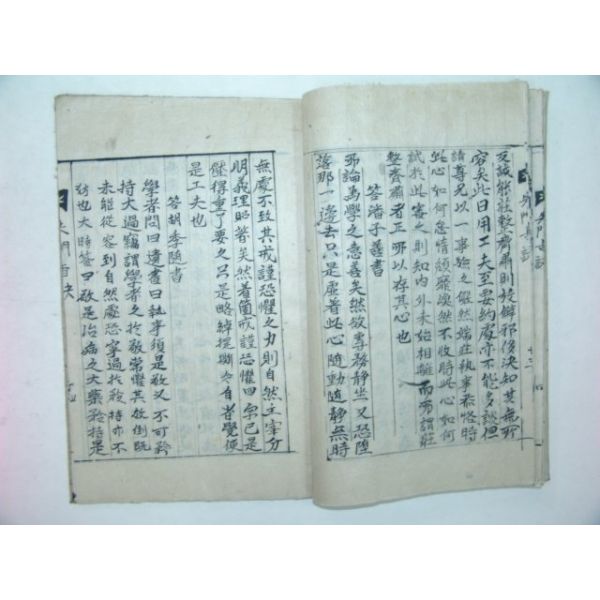 及誠能莊整齊肅則放僻邪侈決知其無所
容矣此日用工夫至要約處亦不能多談但
請尊兄以一事驗之儼然端莊執事恭恪時
此心如何怠惰頹靡渙然不收時此心如何
試於此審之則知內外未始相離而所謂莊
整齊肅者正所以存其心也
答潘子善書
所論為學之意善矣然欲專務靜坐又恐墮
落那一邊去只是虛著此心隨動隨靜無時
無處不致其戒謹恐懼之力則自然主宰分
明義理昭著矣然著箇戒謹恐懼四字已是
壓得重了要之只是略綽提撕令自省覺便
是工夫也
答胡季隨書
學者問曰遺書曰執事須是敬又不可矜
持太過竊謂學者之於敬常懼其放倒既
未能從容到自然處恐寧過於矜持亦不
妨也大時答曰敬是治病之大藥矜持是